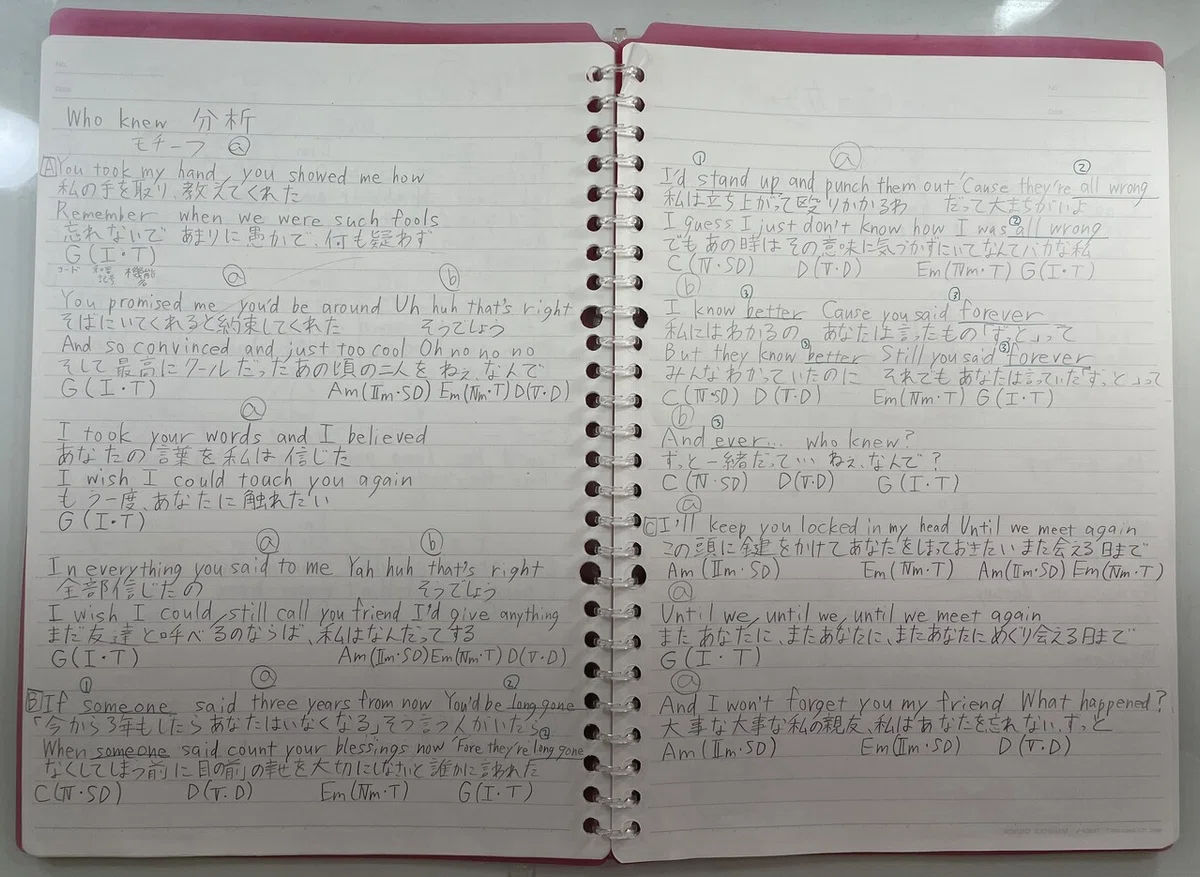 Who knew 分析
モチーフ ⓐ
A You took my hand you showed me how
私の手を取り、教えてくれた
Remember when we were such fools
忘れないで あまりに愚かで、何も疑わず
G (I・T)
コード 和音記号 機能
ⓐ ⓑ
You promised me you'd be around Uh huh that's right
そばにいてくれると約束してくれた そうでしょう
And so convinced and just too cool Oh no no no
そして最高にクールだったあの頃の二人を ねぇ、なんで
G (I・T) Am(Ⅱm・SD) Em(Ⅵm・T) D(Ⅴ・D)
ⓐ
I took your words and I believed
あなたの言葉を私は信じた
I wish I could touch you again
もう一度、あなたに触れたい
G (I・T)
ⓐ ⓑ
In everything you said to me Yah huh that's right
全部信じたの そうでしょう
I wish I could still call you friend I'd give anything
まだ友達と呼べるのならば、私はなんだってする
G(I・T) Am(Ⅱm・SD) Em(Ⅵm・T) D(Ⅴ・D)
① ⓐ ②
B If someone said three years from now You'd be long gone
「今から3年もしたらあなたはいなくなる」そう言う人がいたら
②
When someone said count your blessings now 'Fore they're long gone
なくしてしまう前に目の前の幸せを大切にしなさいと誰かに言われた
C(Ⅳ・SD) D(Ⅴ・D) Em(Ⅵm・T) G(I・T)
① ⓐ ②
I'd stand up and punch them out 'Cause they're all wrong
私は立ち上がって殴りかかるわ だって大まちがいよ
②
I guess I just don't know how I was all wrong
でもあの時はその意味に気づかずにいてなんてバカな私
C(Ⅳ・SD) D(Ⅴ・D) Em(Ⅵm・T) G(I・T)
ⓑ ③ ③
I know better Cause you said forever
私にはわかるの あなたは言ったもの「ずっと」って
③ ③
But they know better Still you said forever
みんなわかっていたのに それでもあなたは言っていた「ずっと」って
C(Ⅳ・SD) D(Ⅴ・D) Em(Ⅵm・T) G(I・T)
ⓑ ③
And ever... who knew?
ずっと一緒だっていい ねぇ、なんで?
C(Ⅳ・SD) D(Ⅴ・D) G(I・T)
ⓐ
C I'll keep you locked in my head Until we meet again
この頭に鍵をかけてあなたをしまっておきたい また会える日まで
Am(Ⅱm・SD) Em(Ⅵm・T) Am(Ⅱm・SD) Em(Ⅵm・T)
ⓐ
Until we, until we, until we meet again
また あなたに、またあなたに、またあなたにめぐり会える日まで
G(I・T)
ⓐ
And I won't forget you my friend What happened?
大事な大事な私の親友、私はあなたを忘れない、ずっと
Am(Ⅱm・SD) Em(Ⅱm・SD) D(Ⅴ・D)